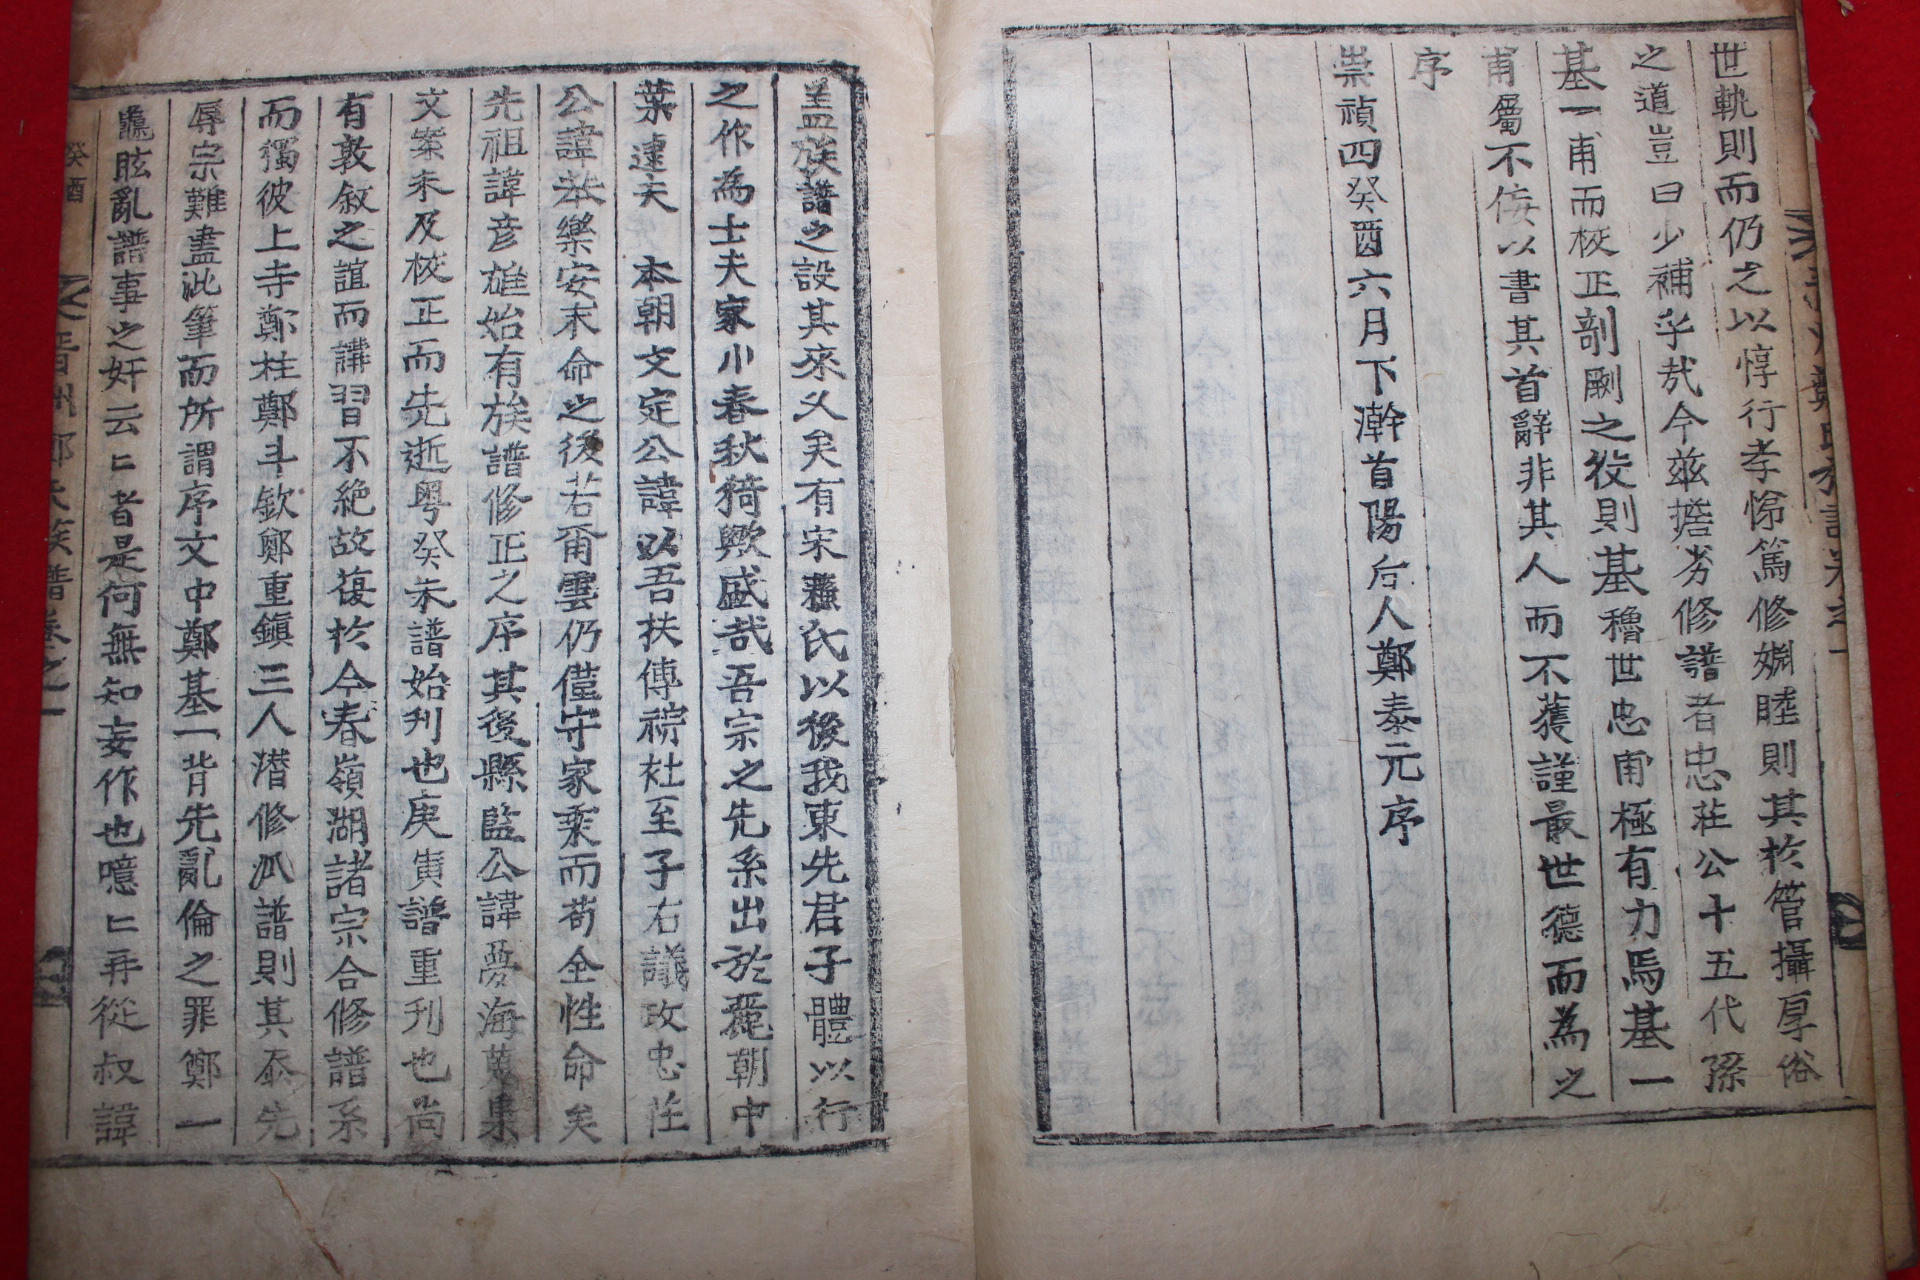 世軌則而仍之以惇行孝悌篤修婣睦則其於管攝厚俗
之道豈曰少補乎哉今玆擔劵修譜者忠莊公十五代孫
基一甫而校正剖劂之役則基魯世忠甫極有力焉基一
甫屬不侫以書其首辭非其人而不獲謹最世德而為之
序
崇禎四癸酉六月下澣首陽后人鄭泰元序
盖族譜之設其來乆矣有宋蘓氏以後我東先君子體以行
之作為士夫家小春秋猗歟盛哉吾宗之先系出於麗朝中
葉逮夫 本朝文定公諱以吾扶傳禥社至子右議政忠莊
公諱苯樂安末命之後若甭雲仍僅守家乘而苟全性命矣
先祖諱彦雄始有族譜修正之序其後縣監公諱夢海蒐集
文案未及校正而先逝粤癸未譜始刋也庚寅譜重刋也尚
有敦敘之誼而講習不絶故復於今春嶺湖諸宗合修譜系
而獨彼上寺鄭柱鄭斗欽鄭重鎭三人潜修派譜則其忝先
辱宗難盡泚筆而所謂序文中鄭基一背先亂倫之罪鄭一
鸁眩亂譜事之奸云匕者是何無知妄作也噫匕再從叔諱
癸酉
晋州鄭氏族譜卷之一